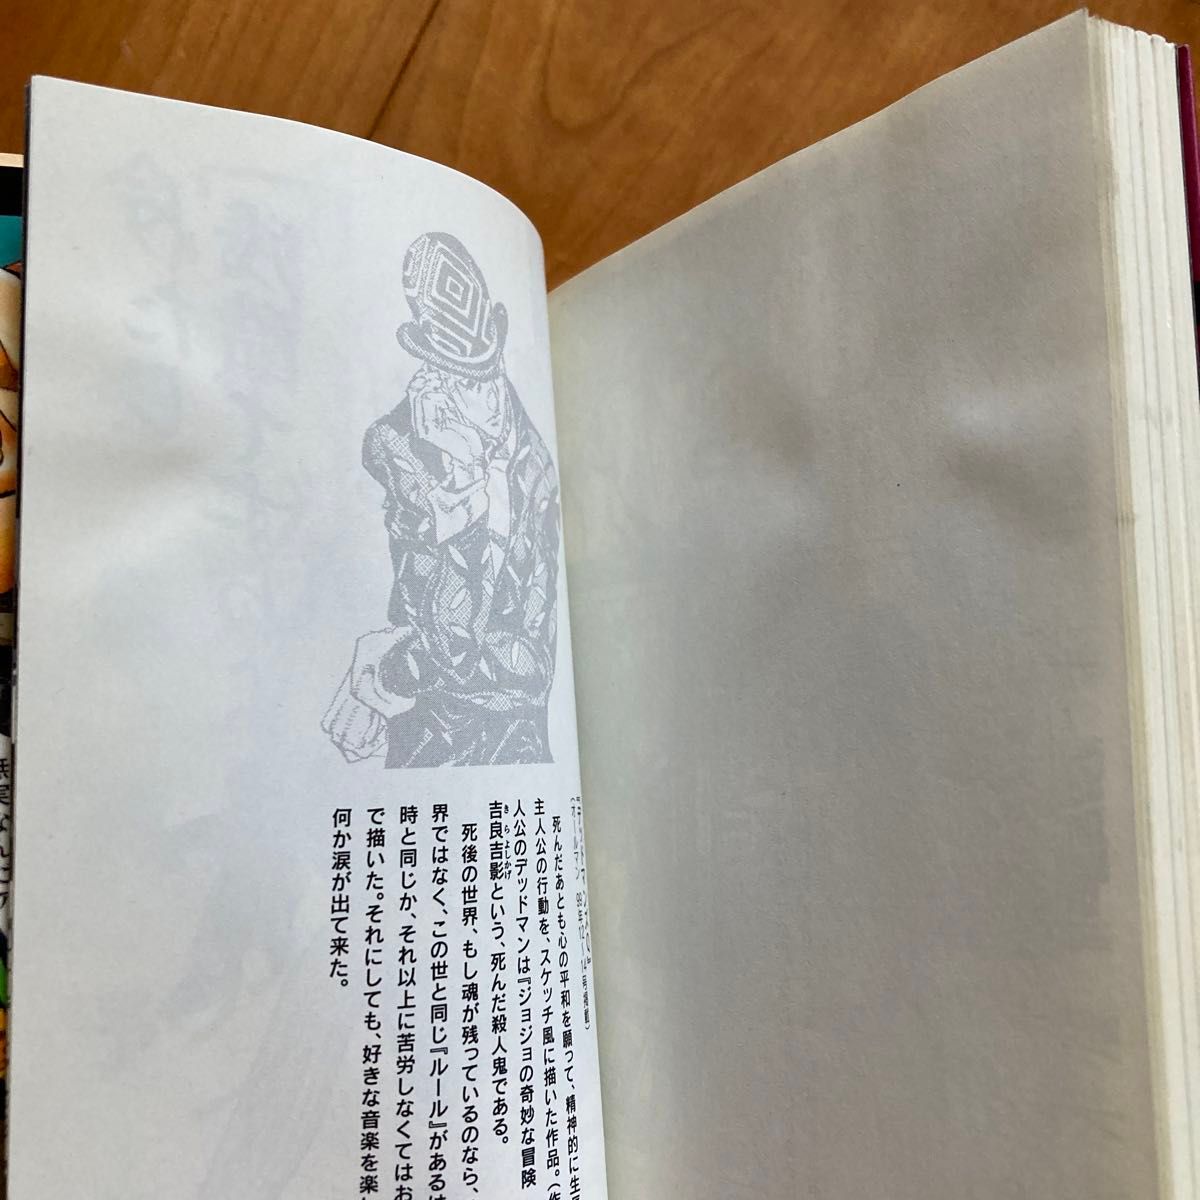 『デッドマンズQ』
(オールマン 99年12〜14号掲載)
死んだあとも心の平和を願って、精神的に生
主人公の行動を、スケッチ風に描いた作品。(作
人公のデッドマンは『ジョジョの奇妙な冒険
吉良吉影という、死んだ殺人鬼である。
きらよしかげ
死後の世界、もし魂が残っているのなら、
界ではなく、この世と同じ『ルール』があるは
時と同じか、それ以上に苦労しなくてはお
で描いた。それにしても、好きな音楽を楽し
何か涙が出て来た。
無実なんにっ